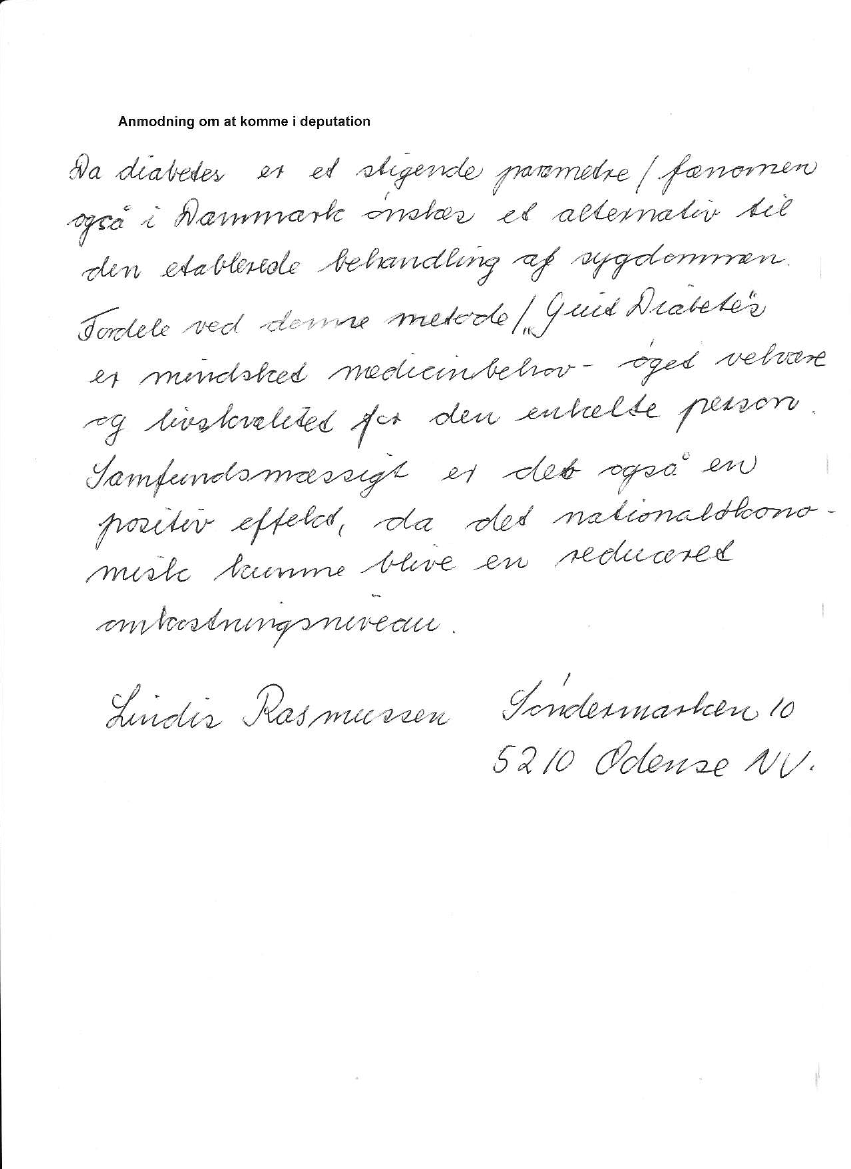 Anmodning om at komme i deputation
Da diabetes er et stigende parametre / fænomen
også i Danmark ønskes et alternativ til
den etablerede behandling af sygdommen.
Fordele ved denne metode / „Quit Diabetes"
er mindsket medicinbehov - øget velvære
og livskvalitet for den enkelte person.
Samfundsmæssigt er det også en
positiv effekt, da det nationaløkono-
misk kunne blive en reduceret
omkostningsniveau.
Lindis Rasmussen Søndermarken 10
5210 Odense NV.